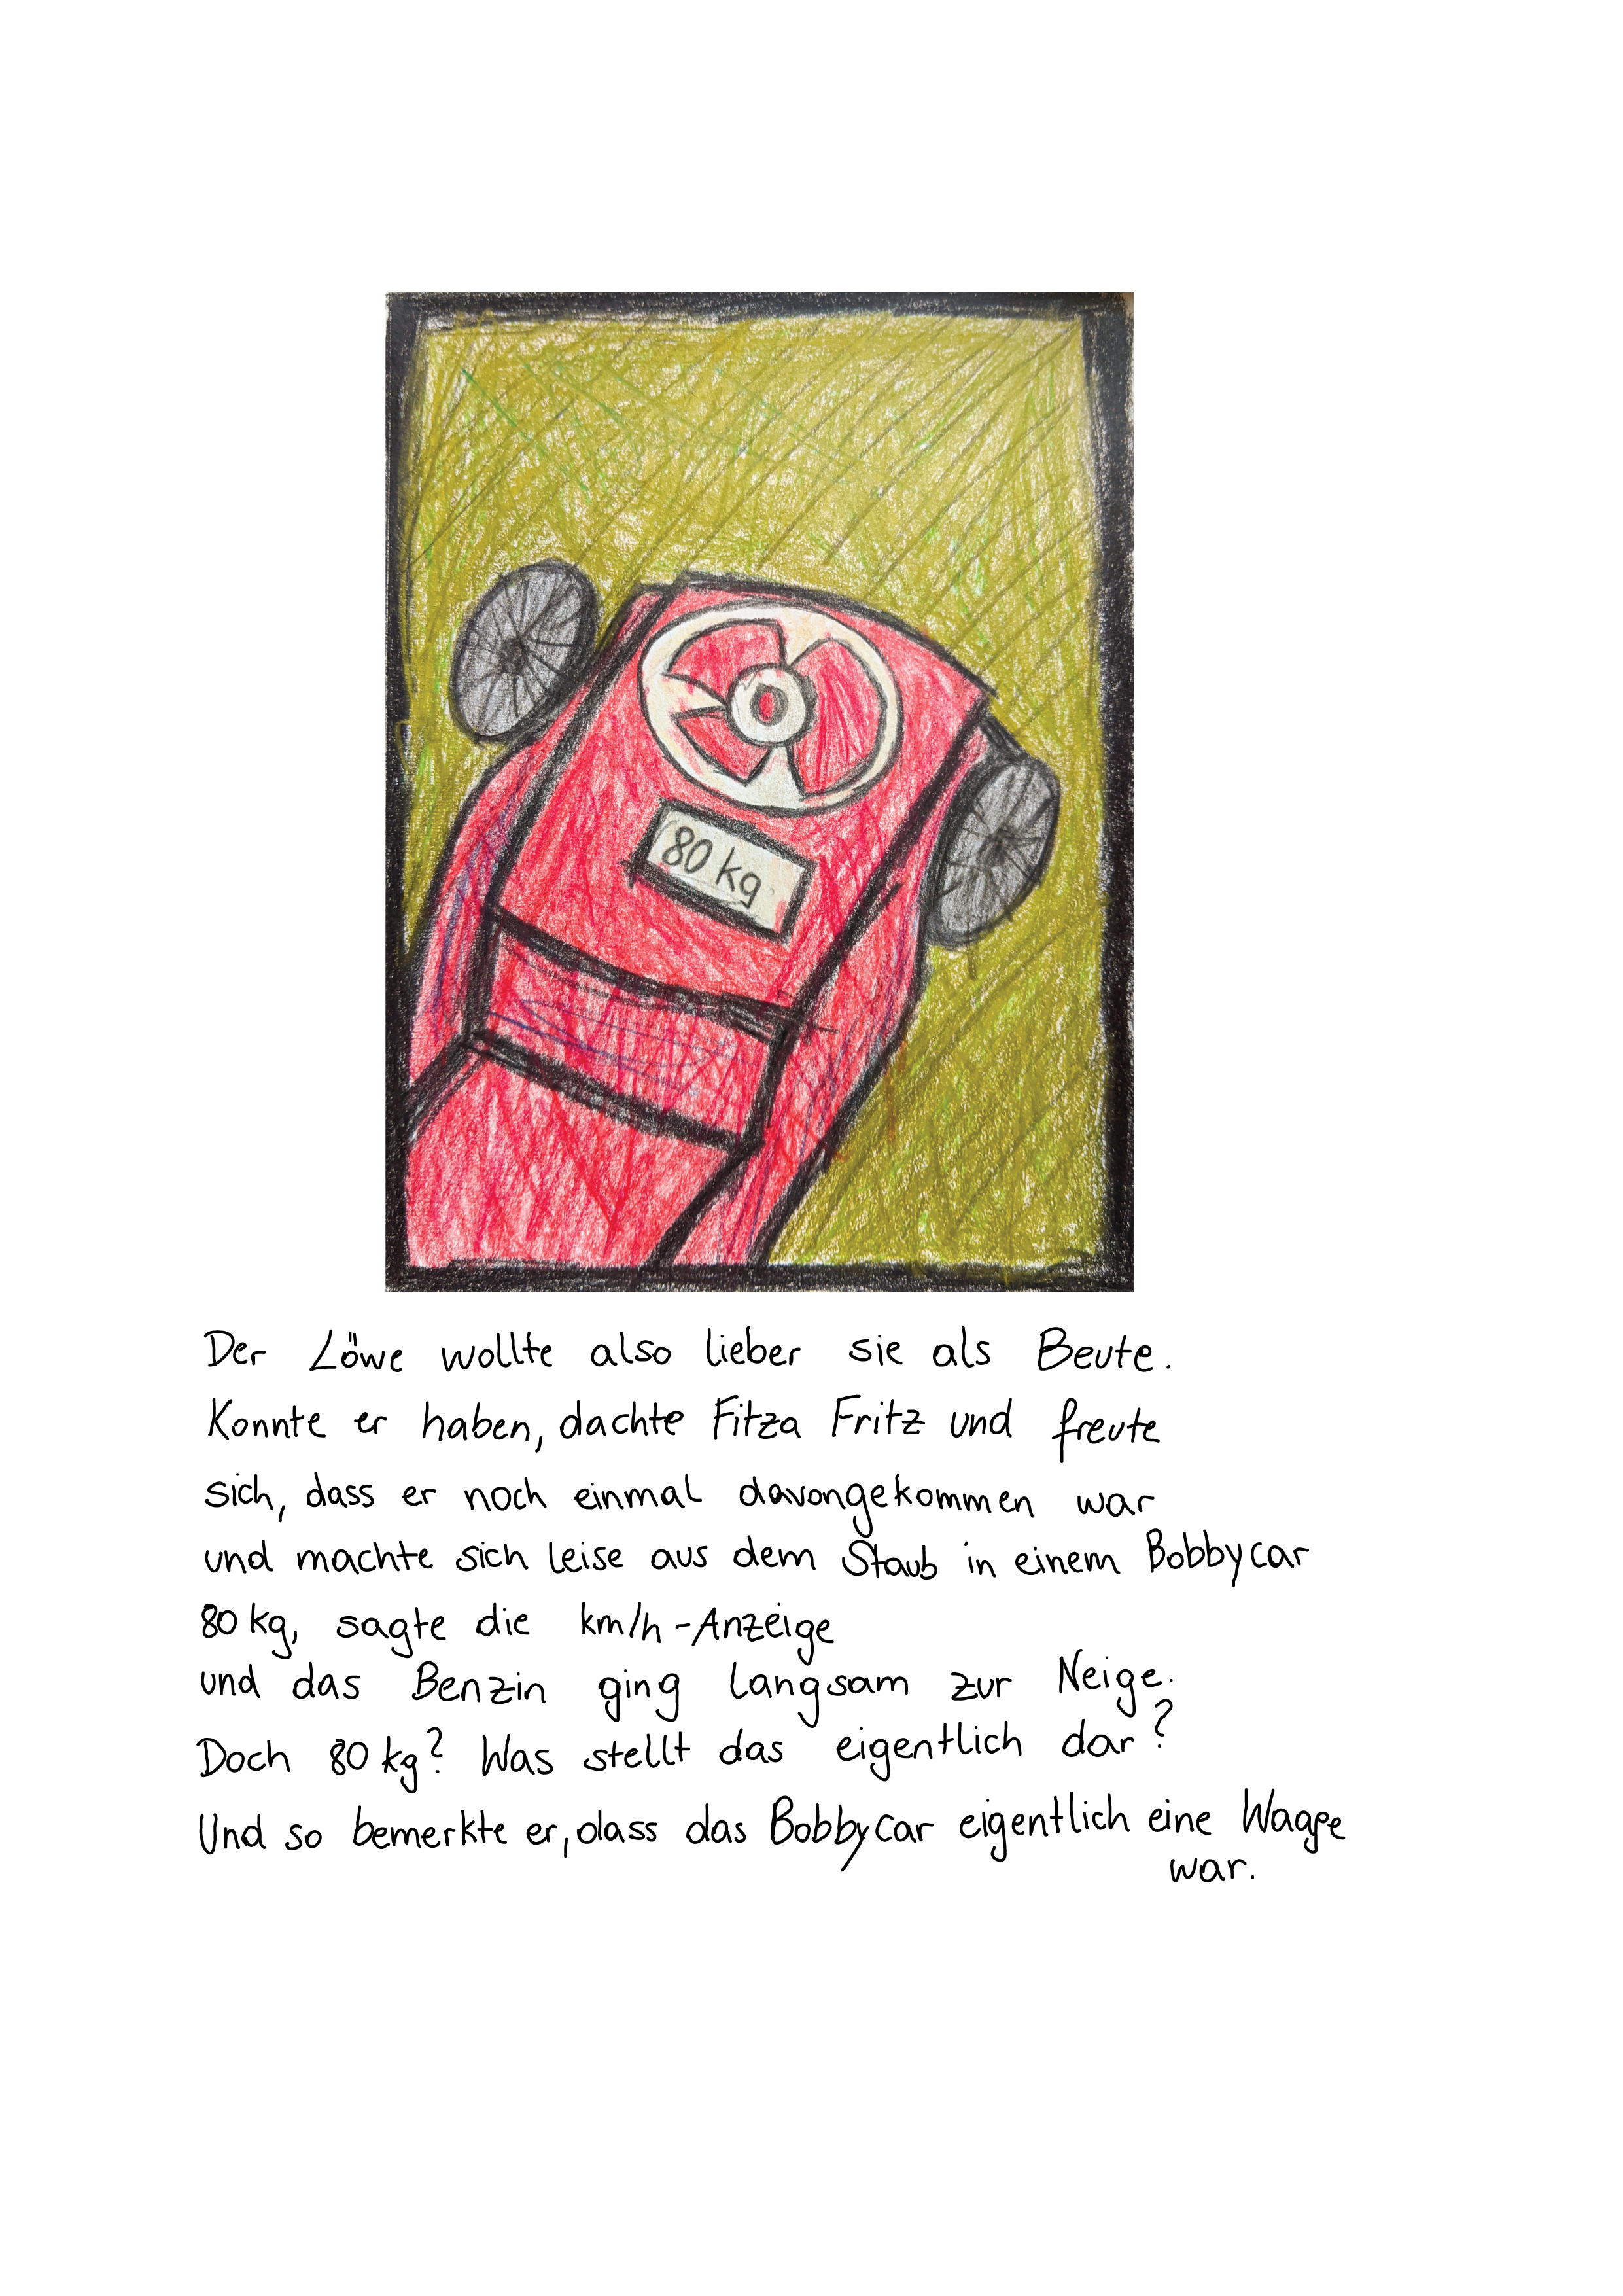 80 kg
Der Löwe wollte also lieber sie als Beute.
Konnte er haben, dachte Fitza Fritz und freute
sich, dass er noch einmal davongekommen war
und machte sich leise aus dem Staub in einem Bobbycar
80 kg, sagte die km/h-Anzeige
und das Benzin ging langsam zur Neige.
Doch 80 kg? Was stellt das eigentlich dar?
Und so bemerkte er, dass das Bobbycar eigentlich eine Waage
war.